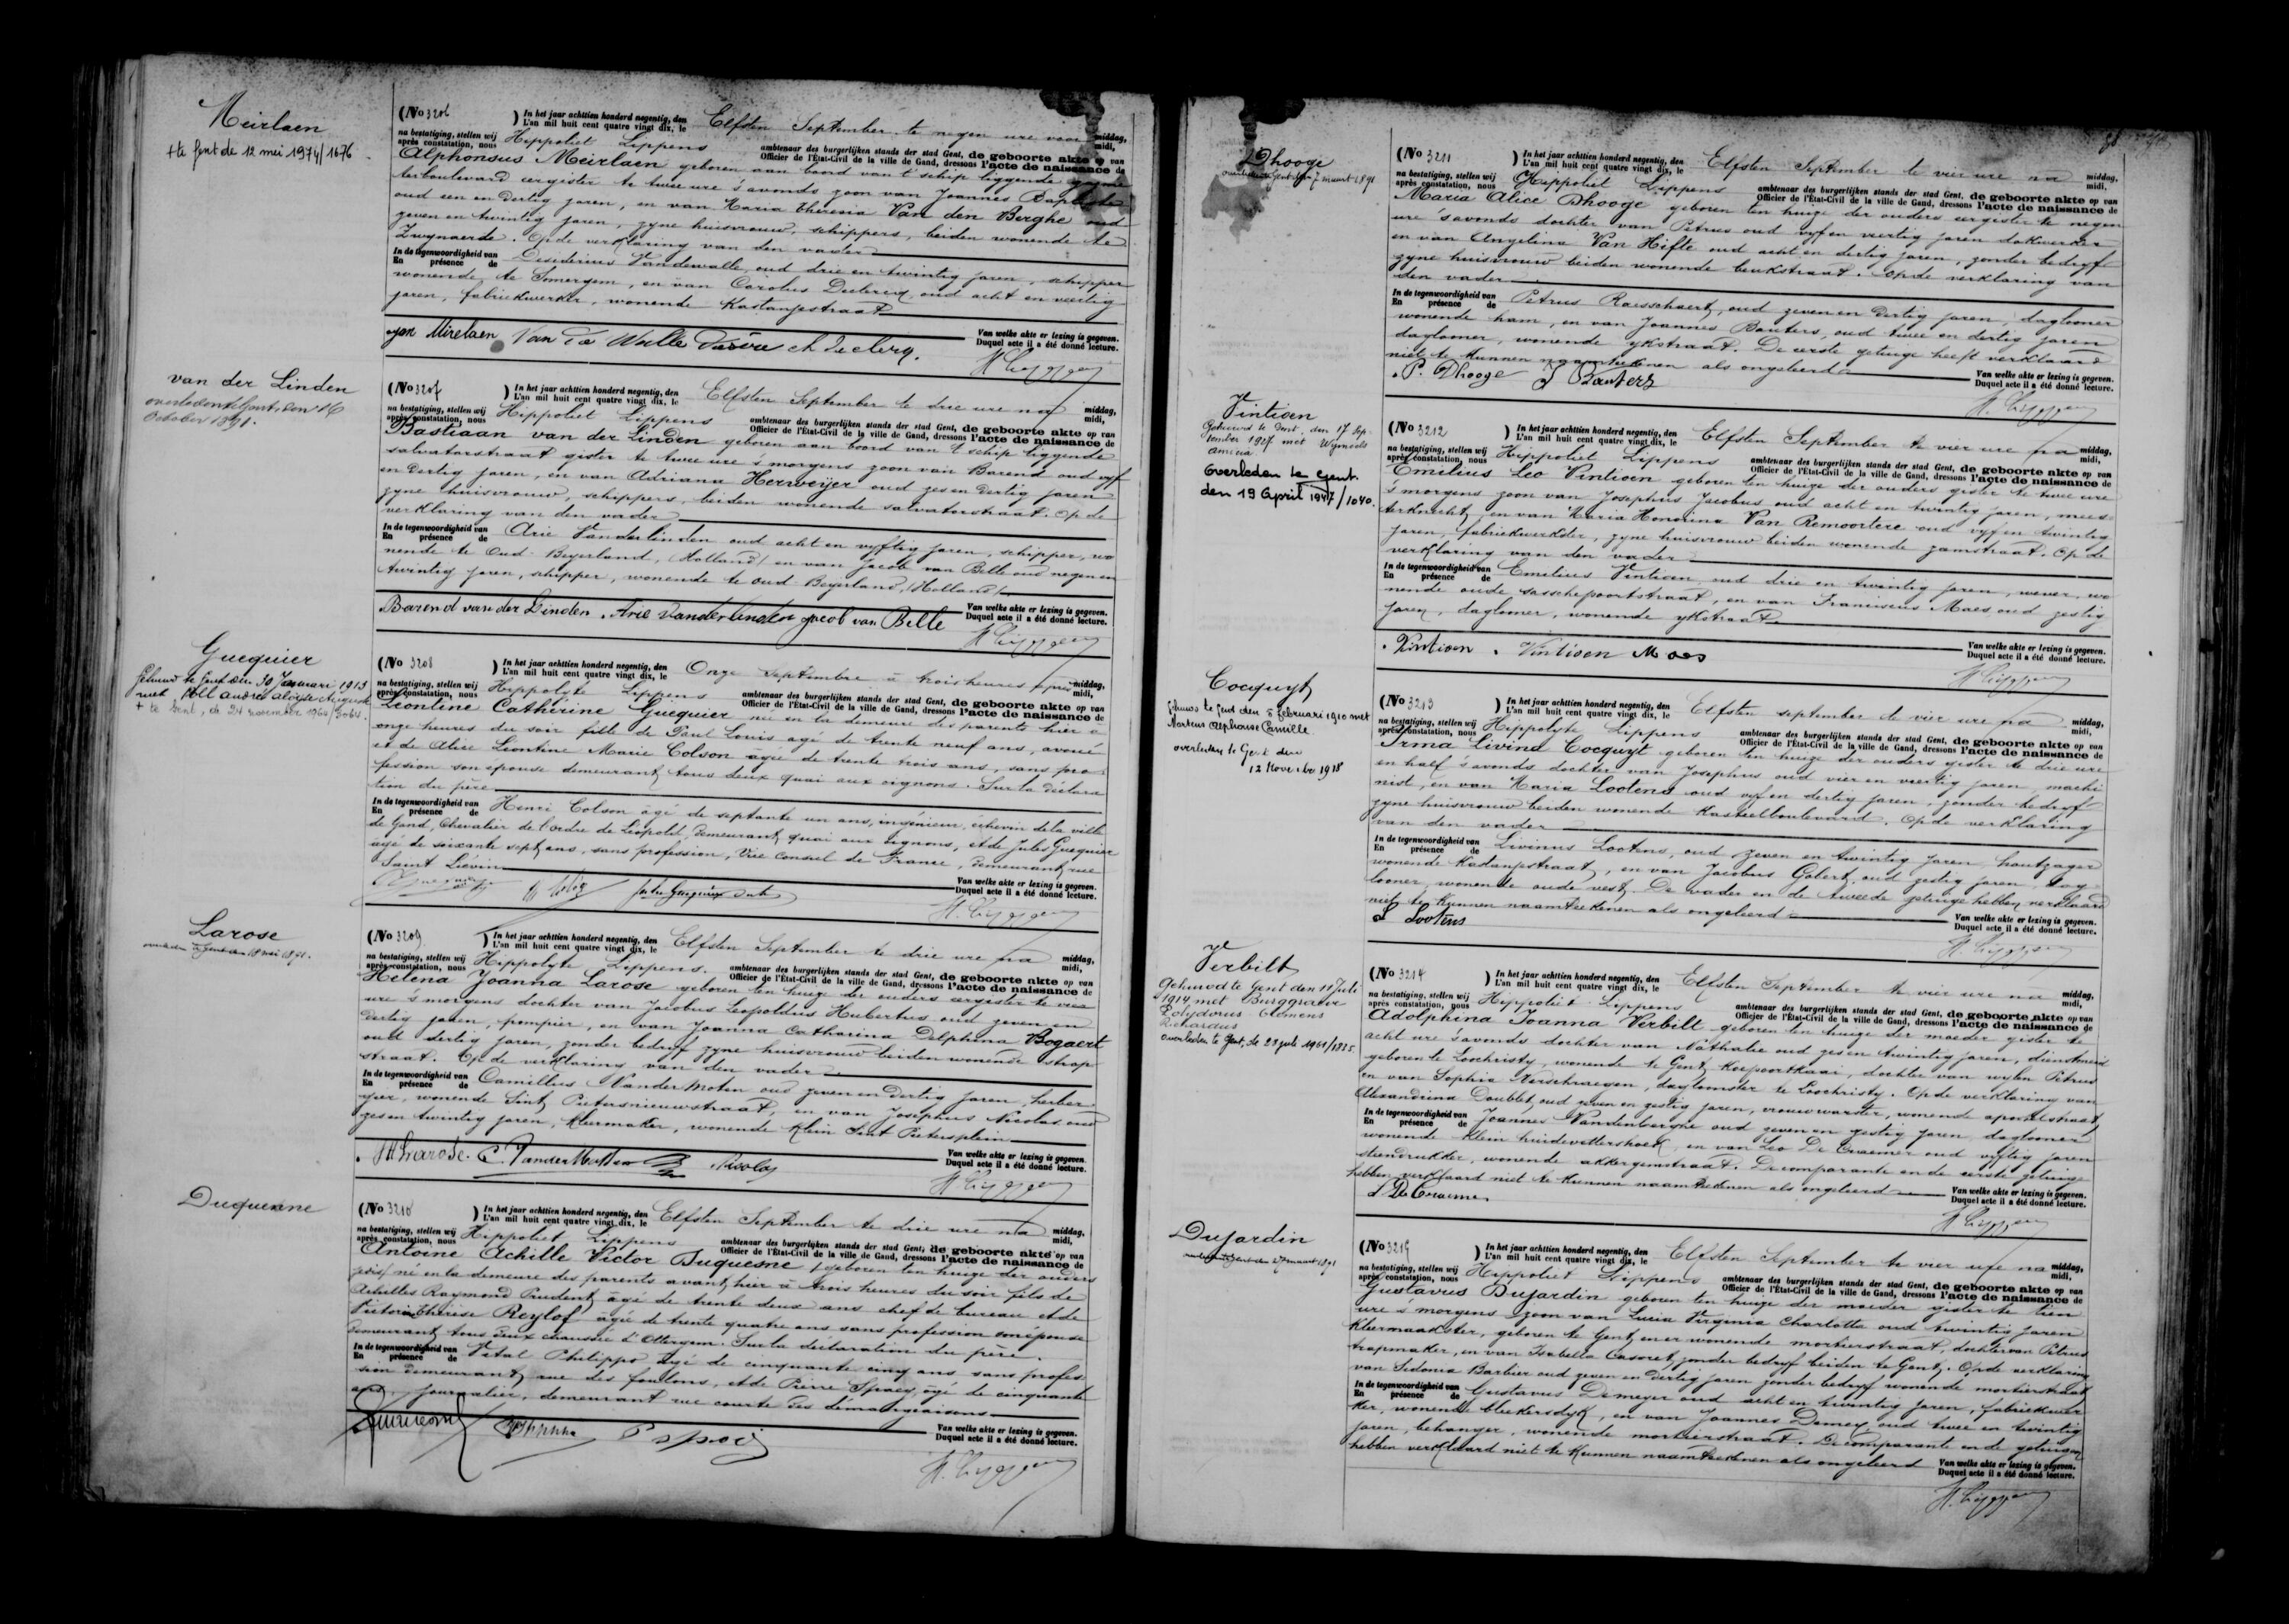 Meirlaen
+ te Gent de 12 mei 1974/1676
(No 3206) In het jaar achttien honderd negentig, den
L'an mil huit cent quatre vingt dix, le
Elfsten September te negen ure voor middag,
midi,
na bestatiging, stellen wij
après constatation, nous
Hippoliet Lippens
ambtenaar des burgerlijken stands der stad Gent, de geboorte akte op van
Officier de l'État-Civil de la ville de Gand, dressons l'acte de naissance de
Alphonsus Meirlaen geboren aan boord van t' schip liggende
terboulevard eergister te twee ure s'avonds zoon van Joannes Baptiste
oud een en dertig jaren, en van Maria Theresia Van den Berghe oud
zeven en twintig jaren, zyne huisvrouw, schippers, beiden wonende te
Zwynaerde. Op de verklaring van den vader
In de tegenwoordigheid van
En présence de
Desiderius Vandewalle, oud drie en twintig jaren, schipper
wonende te Somergem, en van Carolus Declercq, oud acht en veertig
jaren, fabriekwerker, wonende Kastanjestraat
Van welke akte er lezing is gegeven.
Duquel acte il a été donné lecture.
van der Linden
overleden te Gent, den 16
October 1891.
(No 3207) In het jaar achttien honderd negentig, den
L'an mil huit cent quatre vingt dix, le
Elfsten September te drie ure na middag,
midi,
na bestatiging, stellen wij
après constatation, nous
Hippoliet Lippens
ambtenaar des burgerlijken stands der stad Gent, de geboorte akte op van
Officier de l'État-Civil de la ville de Gand, dressons l'acte de naissance de
Bastiaan van der Linden geboren aan boord van t' schip liggende
salvatorstraat gister te twee ure s'morgens zoon van Barend oud vyf
en dertig jaren, en van Adriana Herweijer oud zes en dertig jaren
zyne huisvrouw, schippers, beiden wonende salvatorstraat. Op de
verklaring van den vader
In de tegenwoordigheid van
En présence de
Arie Vanderlinden oud acht en vyftig jaren, schipper, wo
nende te Oud-Beyerland, (Holland) en van Jacob van Belle oud negen en
twintig jaren, schipper, wonende te Oud Beyerland, (Holland)
Barend van der Linden. Arie vanderLinden Jacob van Belle
Van welke akte er lezing is gegeven.
Duquel acte il a été donné lecture.
Guequier
Gehuwd te Gent den 30 Januari 1913
+ te Gent, de 24 november 1964/3064.
(No 3208) In het jaar achttien honderd negentig, den
L'an mil huit cent quatre vingt dix, le
Onze Septembre à trois heures après middag,
midi,
na bestatiging, stellen wij
après constatation, nous
Hippolyte Lippens
ambtenaar des burgerlijken stands der stad Gent, de geboorte akte op van
Officier de l'État-Civil de la ville de Gand, dressons l'acte de naissance de
Léontine Cathérine Guequier née en la demeure des parents hier à
onze heures du soir fille de Paul Louis agé de trente neuf ans, avoué
et de Alice Léontine Marie Colson âgée de trente trois ans, sans pro
fession son épouse demeurant tous deux quai aux oignons. Sur la déclara
tion du père
In de tegenwoordigheid van
En présence de
Henri Colson âgé de septante un ans, ingénieur, échevin de la ville
de Gand, Chevalier de l'ordre de Léopold, demeurant quai aux oignons, et de Jules Guequier
agé de soixante sept ans, sans profession, Vice Consul de France, demeurant rue
Saint Liévin
Van welke akte er lezing is gegeven.
Duquel acte il a été donné lecture.
Larose
(No 3209) In het jaar achttien honderd negentig, den
L'an mil huit cent quatre vingt dix, le
Elfsten September te drie ure na middag,
midi,
na bestatiging, stellen wij
après constatation, nous
Hippolyte Lippens.
ambtenaar des burgerlijken stands der stad Gent, de geboorte akte op van
Officier de l'État-Civil de la ville de Gand, dressons l'acte de naissance de
Helena Joanna Larose geboren ten huize der ouders eergister te vier
ure s'morgens dochter van Jacobus Leopoldus Hubertus oud zeven en
dertig jaren, pompier, en van Joanna Catharina Delphina Bogaert
oud dertig jaren, zonder bedryf zyne huisvrouw beiden wonende strop
straat. Op de verklaring van den vader
In de tegenwoordigheid van
En présence de
Camillus Vander Moten oud zeven en dertig jaren, herber
gier, wonende Sint Pietersnieuwstraat, en van Josephus Nicolas oud
zes en twintig jaren, kleermaker, wonende Klein Sint Pietersplein
Van welke akte er lezing is gegeven.
Duquel acte il a été donné lecture.
Duquesne
(No 3210) In het jaar achttien honderd negentig, den
L'an mil huit cent quatre vingt dix, le
Elfsten September te drie ure na middag,
midi,
na bestatiging, stellen wij
après constatation, nous
Hippoliet Lippens
ambtenaar des burgerlijken stands der stad Gent, de geboorte akte op van
Officier de l'État-Civil de la ville de Gand, dressons l'acte de naissance de
Antoine Achille Victor Duquesne geboren ten huize der ouders
né en la demeure des parents avant hier à trois heures du soir fils de
Achilles Raymond Prudent âgé de trente deux ans chef de bureau et de
Thérèse Reylof âgée de trente quatre ans sans profession son épouse
demeurant tous deux chaussée d'Akkergem. Sur la déclaration du père.
In de tegenwoordigheid van
En présence de
Vital Philippo âgé de cinquante cinq ans, sans profes
sion demeurant rue des foulons, et de Pierre Spaey âgé de cinquante
ans, journalier, demeurant rue courte des
Van welke akte er lezing is gegeven.
Duquel acte il a été donné lecture.
Dhooge
(No 3211) In het jaar achttien honderd negentig, den
L'an mil huit cent quatre vingt dix, le
Elfsten September te vier ure na middag,
midi,
na bestatiging, stellen wij
après constatation, nous
Hippoliet Lippens
ambtenaar des burgerlijken stands der stad Gent, de geboorte akte op van
Officier de l'État-Civil de la ville de Gand, dressons l'acte de naissance de
Maria Alice Dhooge geboren ten huize der ouders eergister te negen
ure s'avonds dochter van Petrus oud vyf en veertig jaren dokwerker
en van Angelina Van Hifte oud acht en dertig jaren, zonder bedryf
zyne huisvrouw beiden wonende beukstraat. Op de verklaring van
den vader
In de tegenwoordigheid van
En présence de
Petrus Raesschaert, oud zeven en dertig jaren, daglooner
wonende ham, en van Joannes Bauters, oud twee en dertig jaren
daglooner, wonende ykstraat. De eerste getuige heeft verklaard
niet te kunnen naamteekenen als ongeleerd
P. Dhooge J Bauters
Van welke akte er lezing is gegeven.
Duquel acte il a été donné lecture.
Vintioen
Gehuwd te Gent, den 17 Sep-
tember 1927 met
Overleden te Gent
den 19 April 1947/1040.
(No 3212) In het jaar achttien honderd negentig, den
L'an mil huit cent quatre vingt dix, le
Elfsten September te vier ure na middag,
midi,
na bestatiging, stellen wij
après constatation, nous
Hippoliet Lippens
ambtenaar des burgerlijken stands der stad Gent, de geboorte akte op van
Officier de l'État-Civil de la ville de Gand, dressons l'acte de naissance de
Emilius Leo Vintioen geboren ten huize der ouders gister te twee ure
s'morgens zoon van Josephus Jacobus oud acht en twintig jaren, mees-
terknecht, en van Maria Honorina Van Remoortere oud vyf en twintig
jaren, fabriekwerkster, zyne huisvrouw beiden wonende zamstraat. Op de
verklaring van den vader
In de tegenwoordigheid van
En présence de
Emilius Vintioen, oud drie en twintig jaren, wever, wo
nende oude sasschepoortstraat, en van Franciscus Maes oud zestig
jaren, daglooner, wonende ykstraat
Vintioen. Vintioen Maes
Van welke akte er lezing is gegeven.
Duquel acte il a été donné lecture.
Cocquyt
Gehuwd te Gent den 5 februari 1910 met
Martens Alphonse Camille
overleden te Gent den
12 November 1918
(No 3213) In het jaar achttien honderd negentig, den
L'an mil huit cent quatre vingt dix, le
Elfsten september te vier ure na middag,
midi,
na bestatiging, stellen wij
après constatation, nous
Hippolyte Lippens
ambtenaar des burgerlijken stands der stad Gent, de geboorte akte op van
Officier de l'État-Civil de la ville de Gand, dressons l'acte de naissance de
Irma Livina Cocquyt geboren ten huize der ouders gister te drie ure
en half s'avonds dochter van Josephus oud vier en veertig jaren, machi
nist, en van Maria Lootens oud vyf en dertig jaren, zonder bedryf
zyne huisvrouw beiden wonende Kasteelboulevard. Op de verklaring
van den vader
In de tegenwoordigheid van
En présence de
Livinus Lootens, oud zeven en twintig jaren, houtzager
wonende Kastanjestraat, en van Jacobus Gobert, oud zestig jaren, dag-
looner, wonende oude vest. De vader en de tweede getuige hebben verklaard
niet te kunnen naamteekenen als ongeleerd
L Lootens
Van welke akte er lezing is gegeven.
Duquel acte il a été donné lecture.
Verbilt
Gehuwd te Gent den 11 Juli
1914 met Burggraeve
Polydorus Clemens
Richardus
Overleden te Gent, de 28 juli 1961/1825.
(No 3214) In het jaar achttien honderd negentig, den
L'an mil huit cent quatre vingt dix, le
Elfsten September te vier ure na middag,
midi,
na bestatiging, stellen wij
après constatation, nous
Hippoliet Lippens
ambtenaar des burgerlijken stands der stad Gent, de geboorte akte op van
Officier de l'État-Civil de la ville de Gand, dressons l'acte de naissance de
Adolphina Joanna Verbilt geboren ten huize der moeder gister te
acht ure s'avonds dochter van Nathalie oud zes en twintig jaren, dienstmeid
geboren te Loochristy, wonende te Gent, Koepoortkaai, dochter van wylen Petrus
en van Sophia Verschraegen, daglomster te Loochristy. Op de verklaring van
Alexandrina Doublet, oud zeven en zestig jaren, vrouwwaarster, wonende apostelstraat
In de tegenwoordigheid van
En présence de
Joannes Vandenberghe oud zeven en zestig jaren daglooner
wonende Klein huidevettershoek, en van Leo De Craemer oud vyftig jaren
steendrukker, wonende akkergemstraat. De comparante en de eerste getuige
hebben verklaard niet te kunnen naamteekenen als ongeleerd
L De Craemer
Van welke akte er lezing is gegeven.
Duquel acte il a été donné lecture.
Dujardin
(No 3215) In het jaar achttien honderd negentig, den
L'an mil huit cent quatre vingt dix, le
Elfsten September te vier ure na middag,
midi,
na bestatiging, stellen wij
après constatation, nous
Hippoliet Lippens
ambtenaar des burgerlijken stands der stad Gent, de geboorte akte op van
Officier de l'État-Civil de la ville de Gand, dressons l'acte de naissance de
Gustavus Dujardin geboren ten huize der moeder gister te tien
ure s'morgens zoon van Lucia Virginia Charlotta oud twintig jaren
kleermaakster, geboren te Gent, en er wonende mortierstraat, dochter van Petrus
trapmaker, en van Isabella Casoret, zonder bedryf beiden te Gent. Op de verklaring
van Sidonia Barbier oud zeven en dertig jaren zonder bedryf wonende mortierstraat
In de tegenwoordigheid van
En présence de
Gustavus Demeyer oud acht en twintig jaren, fabriekwer
ker, wonende bleekersdyk, en van Joannes Demey oud twee en twintig
jaren, behanger, wonende mortierstraat. De comparante en de getuigen
hebben verklaard niet te kunnen naamteekenen als ongeleerd
Van welke akte er lezing is gegeven.
Duquel acte il a été donné lecture.